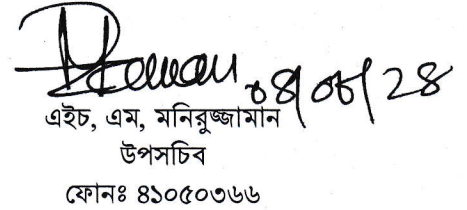 ০৪/০৮/২৪
এইচ, এম, মনিরুজ্জামান
উপসচিব
ফোনঃ ৪১০৫০৩৬৬